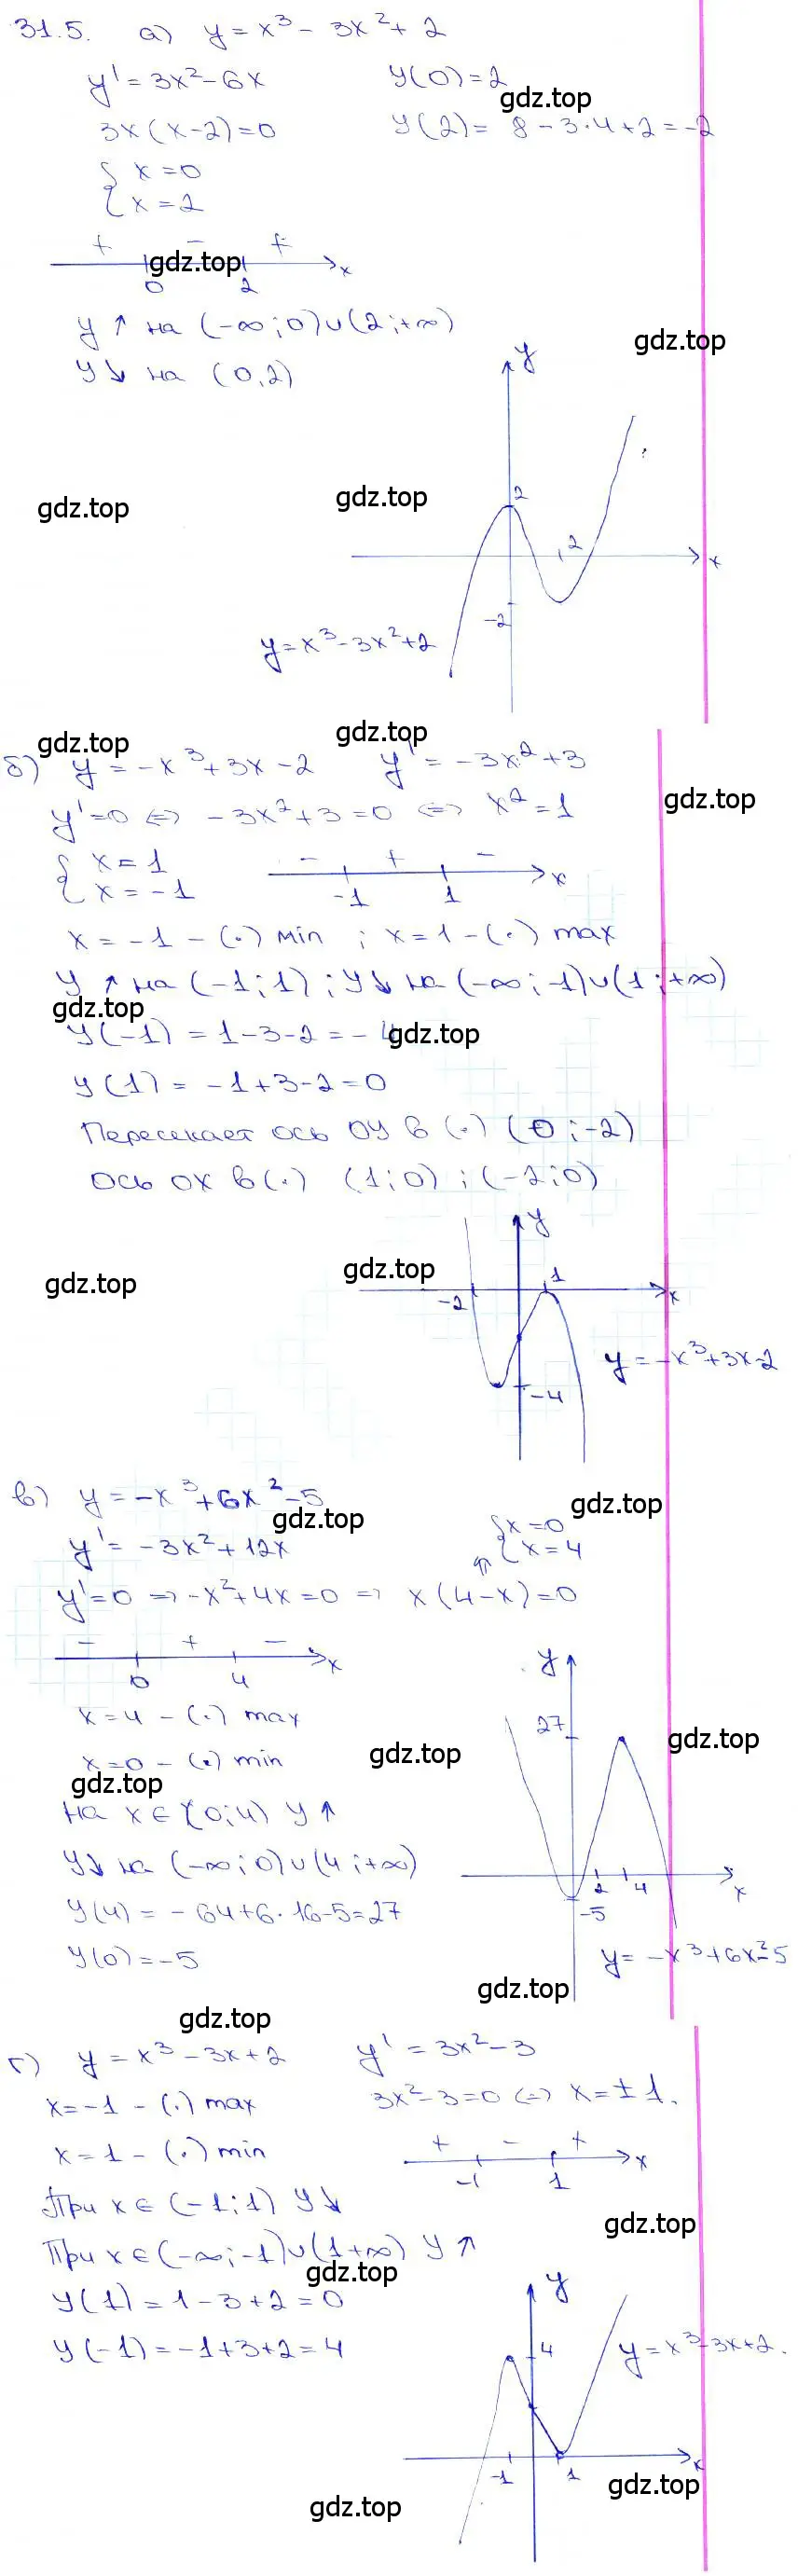 31.5. а) y = x³ - 3x² + 2
y' = 3x² - 6x y(0) = 2
gdz.top
3x(x-2)=0 y(2) = 8 - 3·4 + 2 = -2
{ x = 0
{ x = 2
+ - +
gdz.top
0 2 x
y ↑ на (-∞; 0)∪(2; +∞)
gdz.top
y ↓ на (0,2)
y
gdz.top gdz.top
2
2
x
-2
y = x³ - 3x² + 2
gdz.top gdz.top
б) y = -x³ + 3x - 2 y' = -3x² + 3
y' = 0 ⇔ -3x² + 3 = 0 ⇔ x² = 1
gdz.top
{ x = 1
{ x = -1
- + -
-1 1 x
x = -1 - (·) min ; x = 1 - (·) max
y ↑ на (-1; 1) ; y ↓ на (-∞; -1)∪(1; +∞)
gdz.top
y(-1) = 1 - 3 - 2 = -4
gdz.top
y(1) = -1 + 3 - 2 = 0
Пересекает ось OY в (·) (0; -2)
Ось OX в (·) (1; 0) ; (-2; 0)
y
gdz.top gdz.top
-2 1 x
y = -x³ + 3x - 2
-4
в) y = -x³ + 6x² - 5
gdz.top gdz.top
y' = -3x² + 12x
{ x = 0
{ x = 4
⇑
y' = 0 ⇒ -x² + 4x = 0 ⇒ x(4-x) = 0
- + -
0 4 x
y
x = 4 - (·) max
27
gdz.top gdz.top
x = 0 - (·) min
gdz.top
на x ∈ (0; 4) y ↑
y ↓ на (-∞; 0)∪(4; +∞)
2 4 x
y(4) = -64 + 6·16 - 5 = 27
-5
y(0) = -5
y = -x³ + 6x² - 5
gdz.top
gdz.top
г) y = x³ - 3x + 2 y' = 3x² - 3
x = -1 - (·) max 3x² - 3 = 0 ⇔ x = ±1.
x = 1 - (·) min
+ - +
-1 1 x
При x ∈ (-1; 1) y ↓
gdz.top
При x ∈ (-∞; -1)∪(1 +∞) y ↑
gdz.top
y(1) = 1 - 3 + 2 = 0
y
y(-1) = -1 + 3 + 2 = 4
4
y = x³ - 3x + 2.
-1 1 x
gdz.top
gdz.top